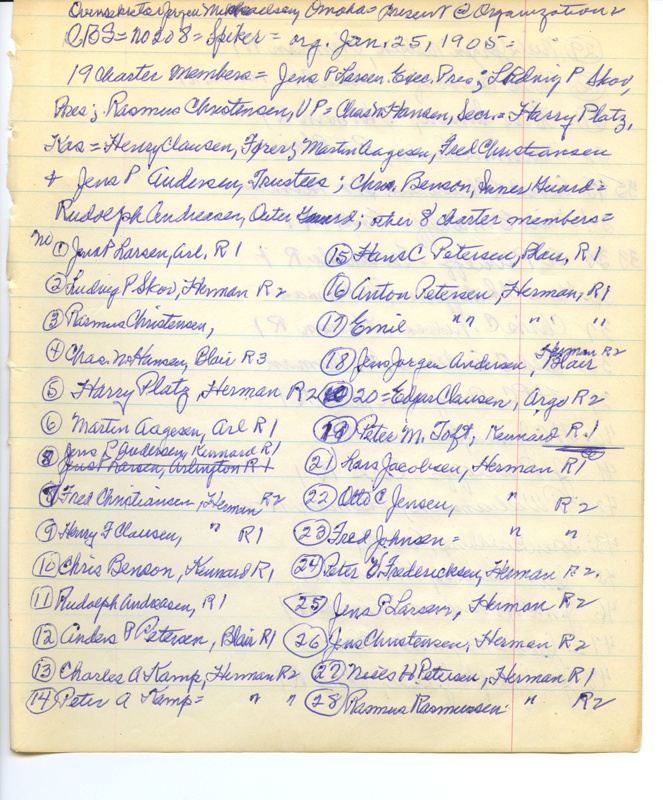 Omaha = present @ Organization =
= no 208 = Spiker = org. Jan. 25, 1905 =
19 Charter Members = Jens P Larsen Exec. Pres; Ludwig P Skov,
Pres; Rasmus Christensen, V P = Chas N Hansen, Secr. = Harry Platz,
Kas = Henry Clausen, Martin Aagesen, Fred Christiansen
+ Jens P Andersen, Trustees; Chris. Benson, Inner Guard =
Rudolph Andreasen, Outer Guard; other 8 charter members =
No ① Jens P Larsen, Arl. R 1
② Ludwig P Skov, Herman R 2
③ Rasmus Christensen,
④ Chas. N Hansen, Blair R 3
⑤ Harry Platz, Herman R 2
⑥ Martin Aagesen, Arl R 1
⑦ Jens P Andersen, Kennard R 1
Jens P Larsen, Arlington R 1
⑧ Fred Christiansen, Herman R 2
⑨ Henry F Clausen, " R 1
⑩ Chris Benson, Kennard R 1
⑪ Rudolph Andreasen, R 1
⑫ Anders P Petersen, Blair R 1
⑬ Charles A Kamp, Herman R 2
⑭ Peter A Kamp = " "
⑮ Hans C Petersen, Blair, R 1
⑯ Anton Petersen, Herman, R 1
⑰ Emil " " " "
⑱ Jens Jorgen Andersen, Herman R 2 Blair
20 = Edgar Clausen, Argo R 2
19 Peter M. Toft, Kennard R. 1
㉑ Lars Jacobsen, Herman R 1
㉒ Otto C Jensen, " R 2
㉓ Fred Johnsen = " "
㉔ Peter Fredericksen, Herman R 2.
㉕ Jens P Larsen, Herman R 2
㉖ Jens Christensen, Herman R 2
㉗ Niels H Petersen, Herman R 1
㉘ Rasmus Rasmussen - " R 2